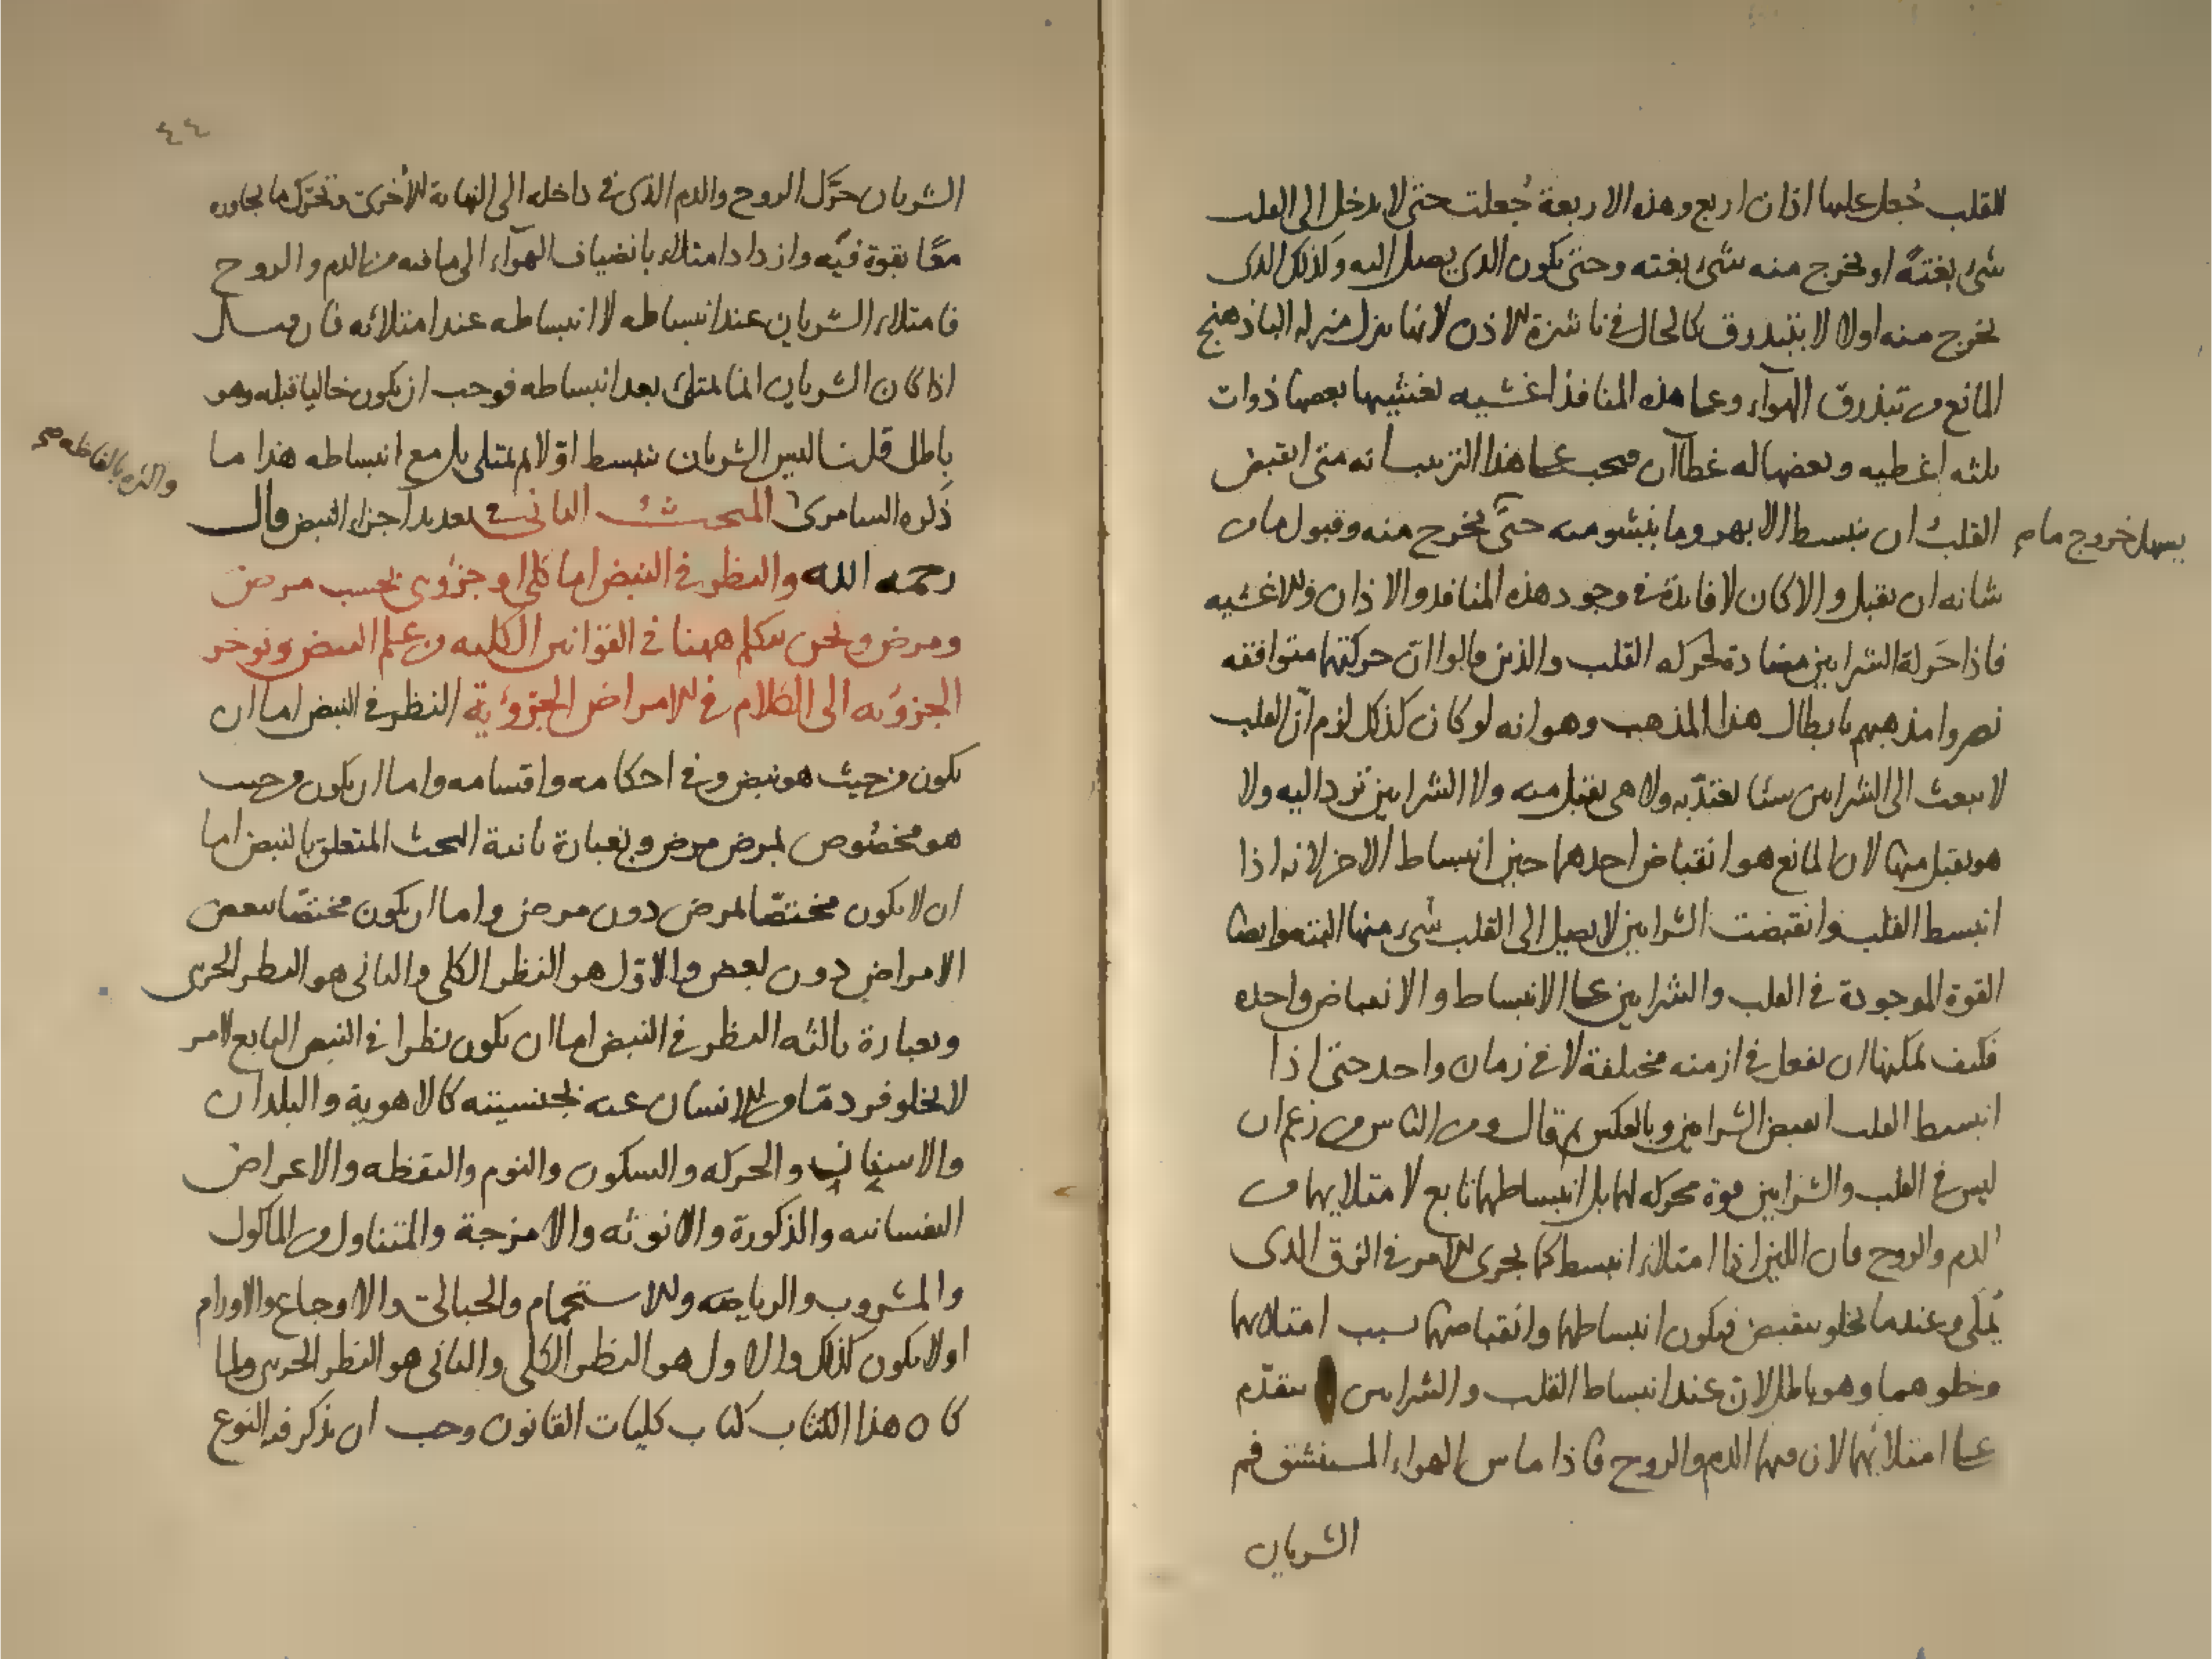 للقلب جُعل عليها اذان اربع وهذه الاربعة جُعلت حتى لا يدخل الى القلب
شئ بغتةً او يخرج منه شئ بغته وحتى يكون الذى يصل اليه وكذلك الذى
يخرج منه اولا لا يتبدرق كالحال فى ناشزة الاذن لانها تنزل منزله الباذهنج
المانع من تبذرق الهوآء وعلى هذه المنافذ اغشيه تغشيها بعضها ذوات
ثلثه اغطيه وبعضها له غطاآن ويجب على هذا الترتيب انه متى انقبض
القلب ان ينبسط الابهر وما ينشو منه حتى يخرج منه وقبول ما من
يسهل خروج ما من
شانه ان يقبل والا كان لا فايدة فى وجود هذه المنافذ والاذان والاغشيه
فاذا حركة الشرايين مضادة لحركه القلب والذين قالوا ان حركتهما متوافقه
نصروا مذهبهم بابطال هذا المذهب وهو انه لو كان كذلك لزم ان القلب
لا يبعث الى الشرايين شيئا يعتد به ولا هى يقبل منه ولا الشرايين تردا اليه ولا
هو يقبل منها لان المانع هو انقباض احدهما حين انبساط الاخر لانه اذا
انبسط القلب وانقبضت الشرايين لا يصل الى القلب شىء منها البته وايضا
القوة الموجودة فى القلب والشرايين على الانبساط والانقباض واحده
فكيف يمكنها ان تفعل فى ازمنه مختلفة لا فى زمان واحد حتى اذا
انبسط القلب انقبض الشرايين وبالعكس ثم قال ومن الناس من زعم ان
ليس فى القلب والشرايين قوة محركه لهما بل انبساطهما تابع لامتلايهما من
الدم والروح فان اللين اذا امتلاء انبسط كما يجرى الامر فى الزق الذى
يُملى وعندما يخلو ينقبض فيكون انبساطهما وانقباضهما بسبب امتلائهما
وخلوهما وهو باطل لان عند انبساط القلب والشرايين يتقدّم
على امتلائهما لان فيهما الدم والروح فاذا ماس الهواء المستنشق فم
الشريان
٤٤
الشريان حرّك الروح والدم الذى فى داخله الى النهاية الأخرى وتحرّك ما يجاوره
معًا بقوة فيه وازداد امتلاء بانضياف الهوآء الى ما فيه من الدم والروح
فامتلاء الشريان عند انبساطه لا انبساطه عند امتلائه فان قيل
اذا كان الشريان انما يمتلئ بعد انبساطه فوجب ان يكون خاليا قبله وهو
باطل قلنا ليس الشريان ينبسط اوّلا ثم يمتلى بل مع انبساطه هذا ما
ذكره السامرى المبحث الثانى فى تعديد اجزاء النبض قال
واكثره بالفاظه صح
رحمه الله والنظر فى النبض اما كلى او جزؤى بحسب مرض
ومرض ونحن نتكلم ههنا فى القوانين الكليه من علم النبض ونوخر
الجزوئيه الى الكلام فى الامراض الجزوئية النظر فى النبض اما ان
يكون من حيث هو نبض وفى احكامه واقسامه واما ان يكون من حيث
هو مخصُوص بمرض مرض وبعبارة ثانية البحث المتعلق بالنبض اما
ان لا يكون مختصّا لمرض دون مرض واما ان يكون مختصّا ببعض
الامراض دون بعض والاوّل هو النظر الكلى والثانى هو النظر الجزئى
وبعبارة ثالثه النظر فى النبض اما ان يكون نظرا فى النبض التابع لامر
لا يخلو فرد مّا من الانسان عنه بجنسيته كالاهوية والبلدان
والاسنان والحركه والسكون والنوم واليقظه والاعراض
النفسانيه والذكورة والانوثه والامزجة والمتناول من الماكول
والمشروب والرياضه والاستحمام والحبالى والاوجاع والاورام
اولا يكون كذلك والاول هو النظر الكلى والثانى هو النظر الجزئى ولما
كان هذا الكتاب كتاب كليات القانون وجب ان يذكر فيه النوع